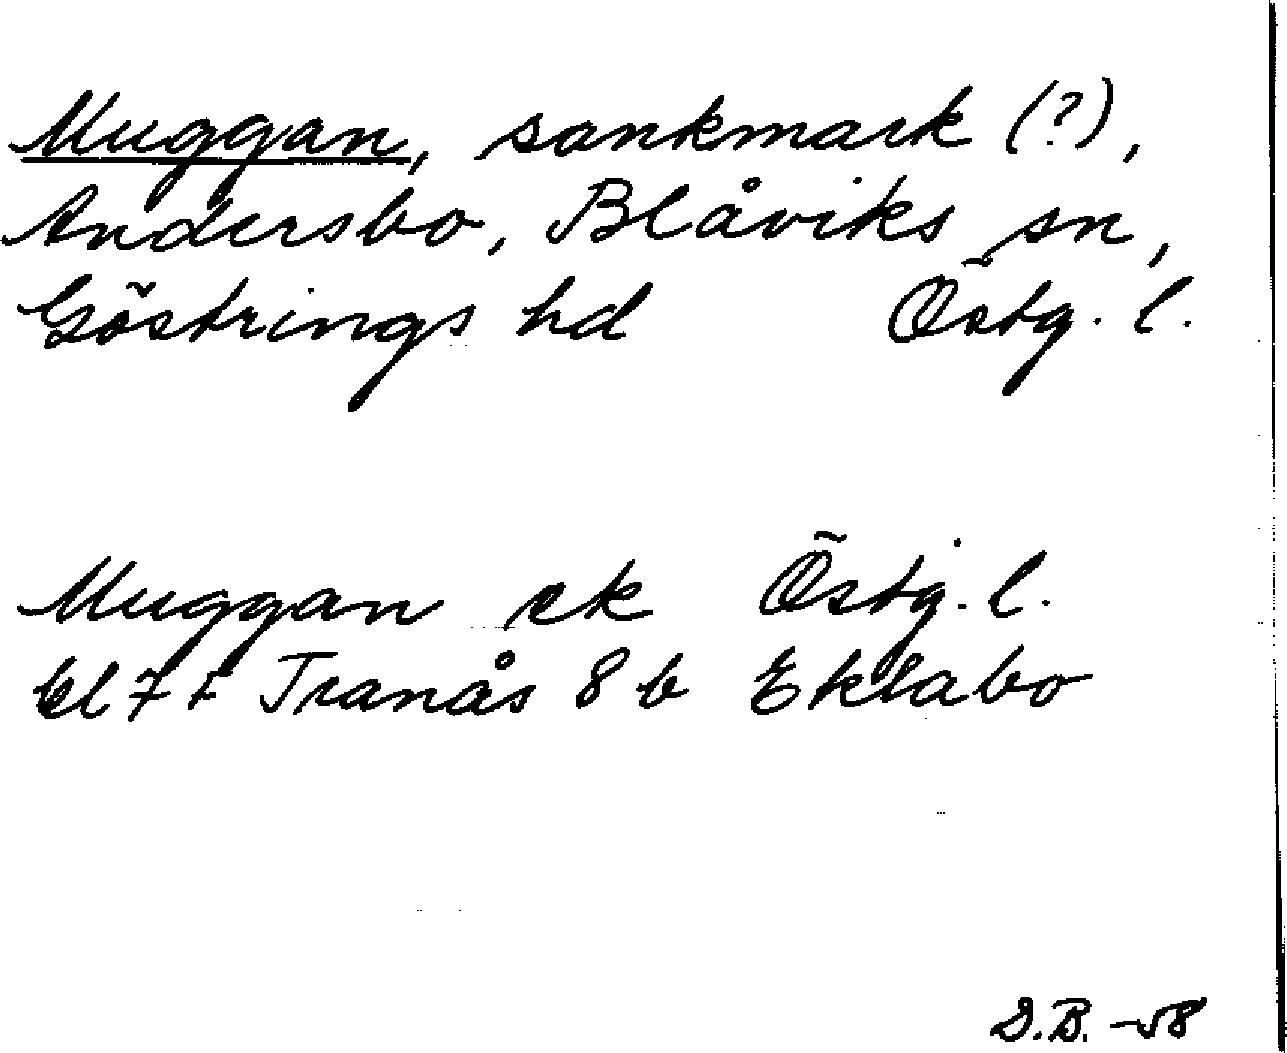 Muggan, sankmark (?),
Andersbo, Blåviks sn,
Göstrings hd Östg. l.
Muggan ek Östg. l.
bl 7 t Tranås 8 b Eklabo
D.B. -58